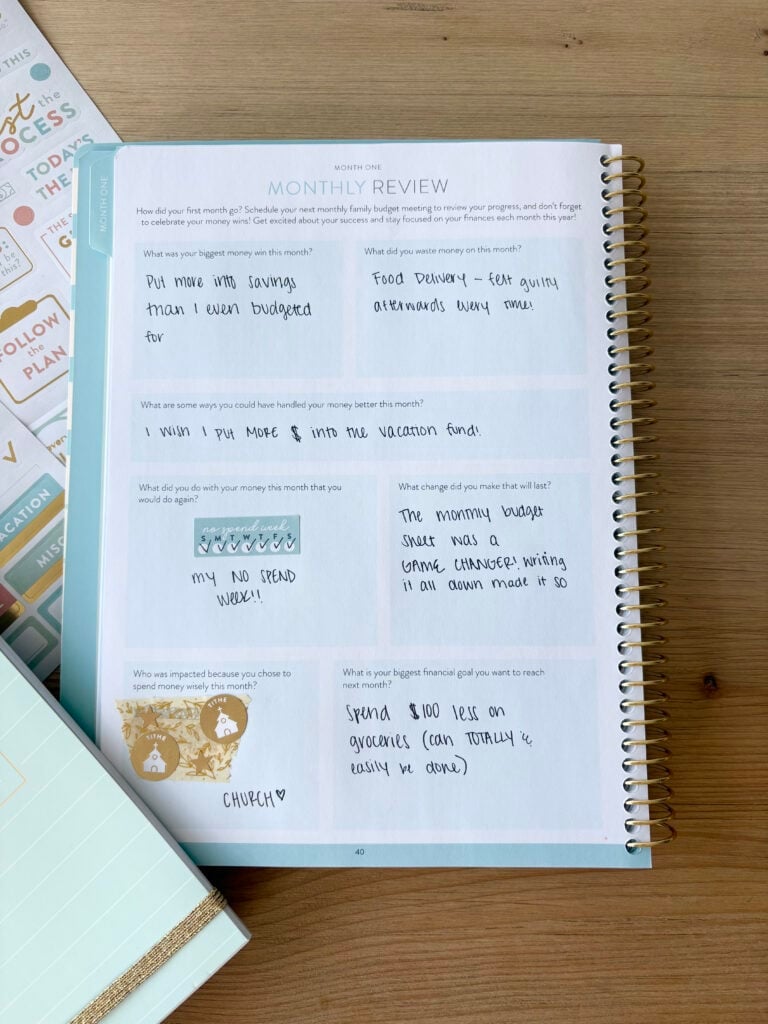 THIS
the
TODAY'S
THE
be
this?
FOLLOW
the
PLAN
MONTH ONE
MONTH ONE
MONTHLY REVIEW
How did your first month go? Schedule your next monthly family budget meeting to review your progress, and don't forget
to celebrate your money wins! Get excited about your success and stay focused on your finances each month this year!
What was your biggest money win this month?
Put more into savings
than I even budgeted
for
What did you waste money on this month?
Food Delivery – felt guilty
afterwards every time!
What are some ways you could have handled your money better this month?
I wish I put MORE $ into the vacation fund!
What did you do with your money this month that you
would do again?
no spend week
S M T W T F S
MY NO SPEND
WEEK!!
What change did you make that will last?
The monthly budget
sheet was a
GAME CHANGER! Writing
it all down made it so
Who was impacted because you chose to
spend money wisely this month?
TITHE
TITHE
CHURCH♡
What is your biggest financial goal you want to reach
next month?
Spend $100 less on
groceries (can TOTALLY &
easily be done)
40